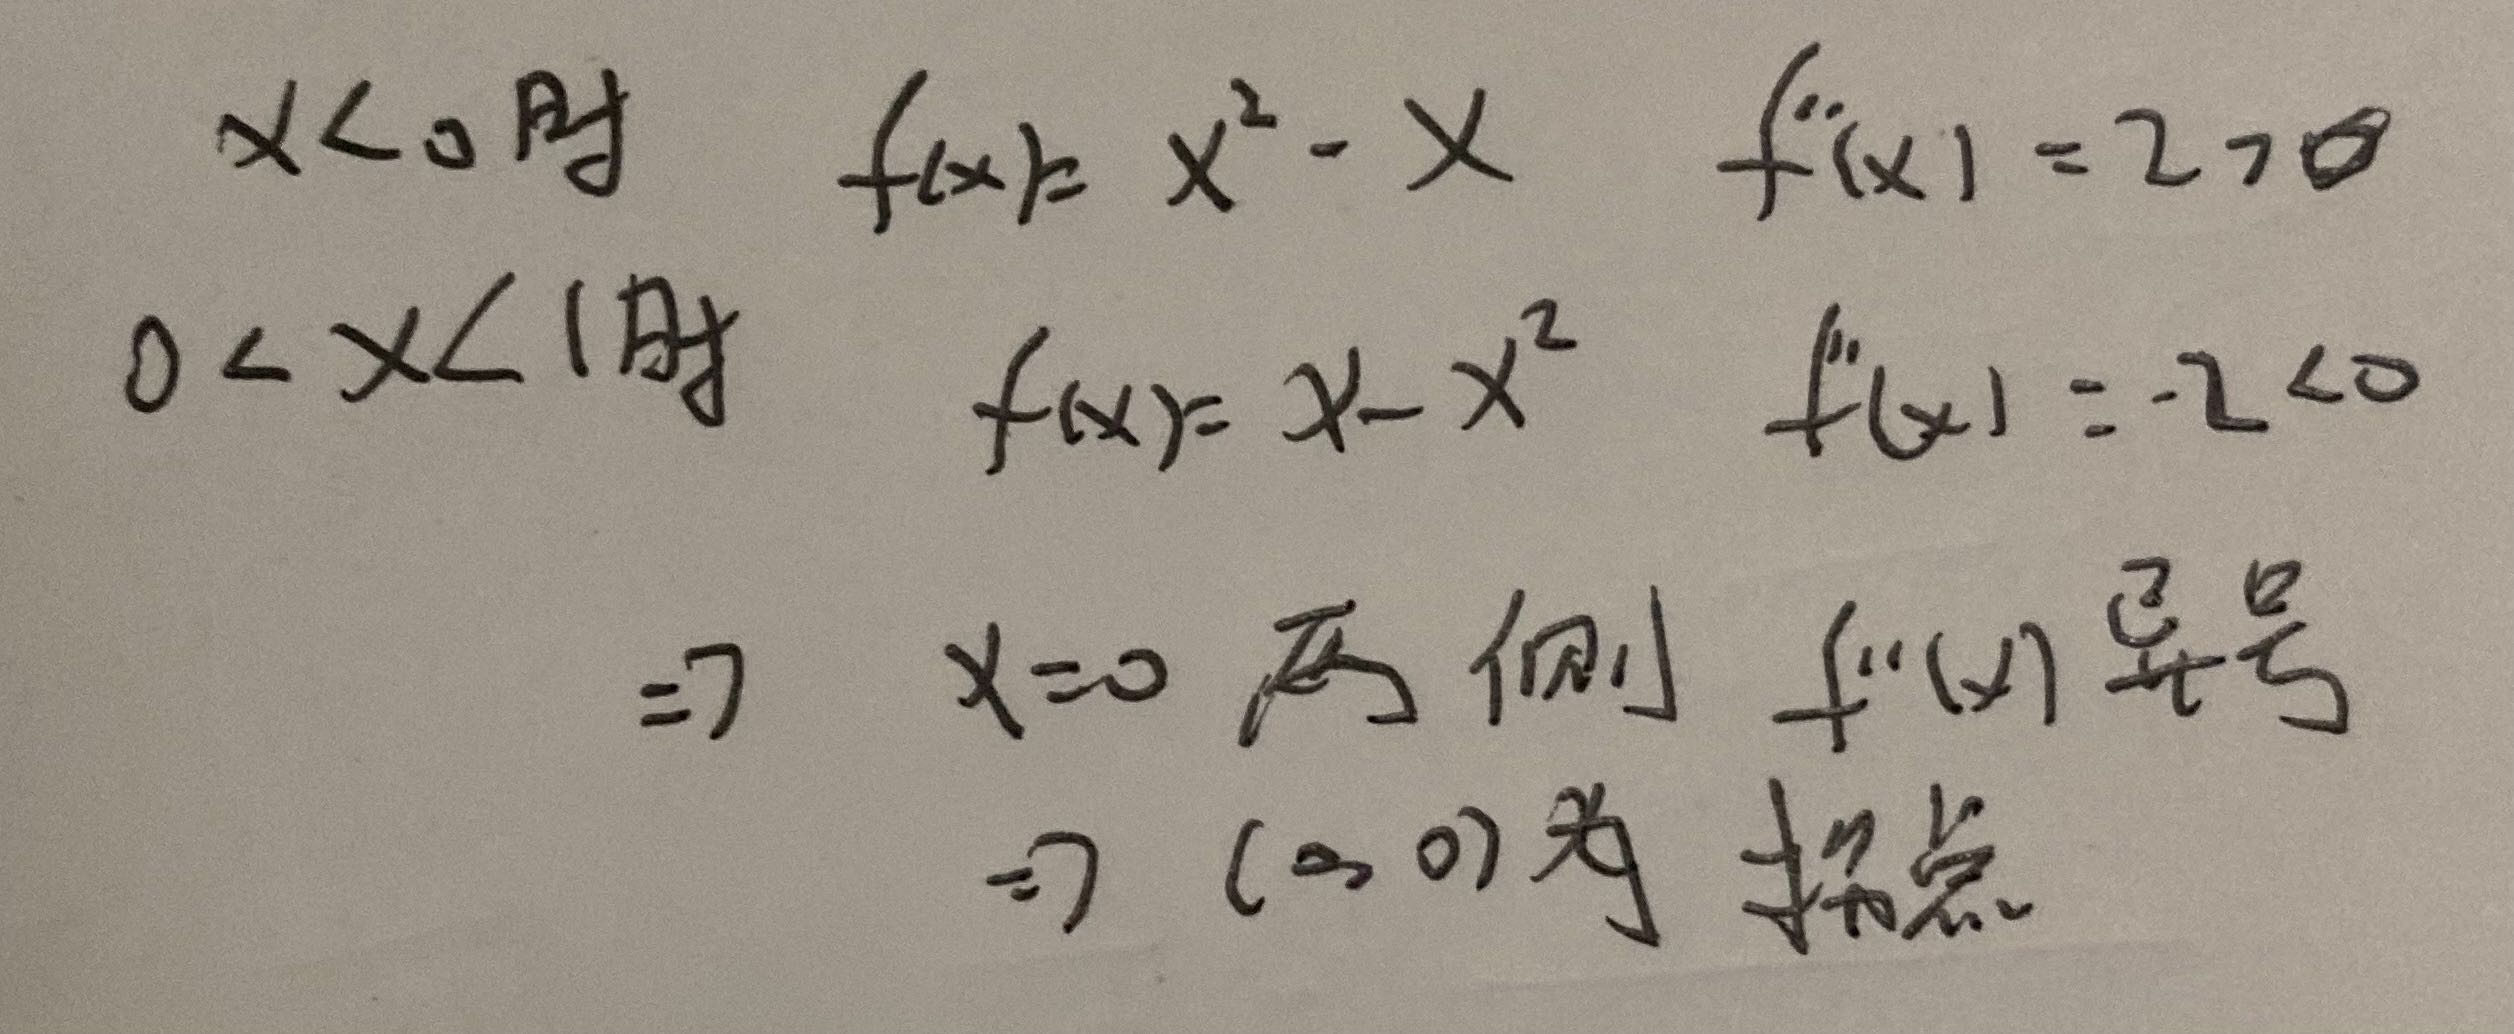 x<0时 f(x)= x² - x f''(x) = 2>0
0<x<1时 f(x)= x-x² f''(x) = -2<0
=> x=0 两侧 f''(x) 异号
=> (0,0)为 拐点